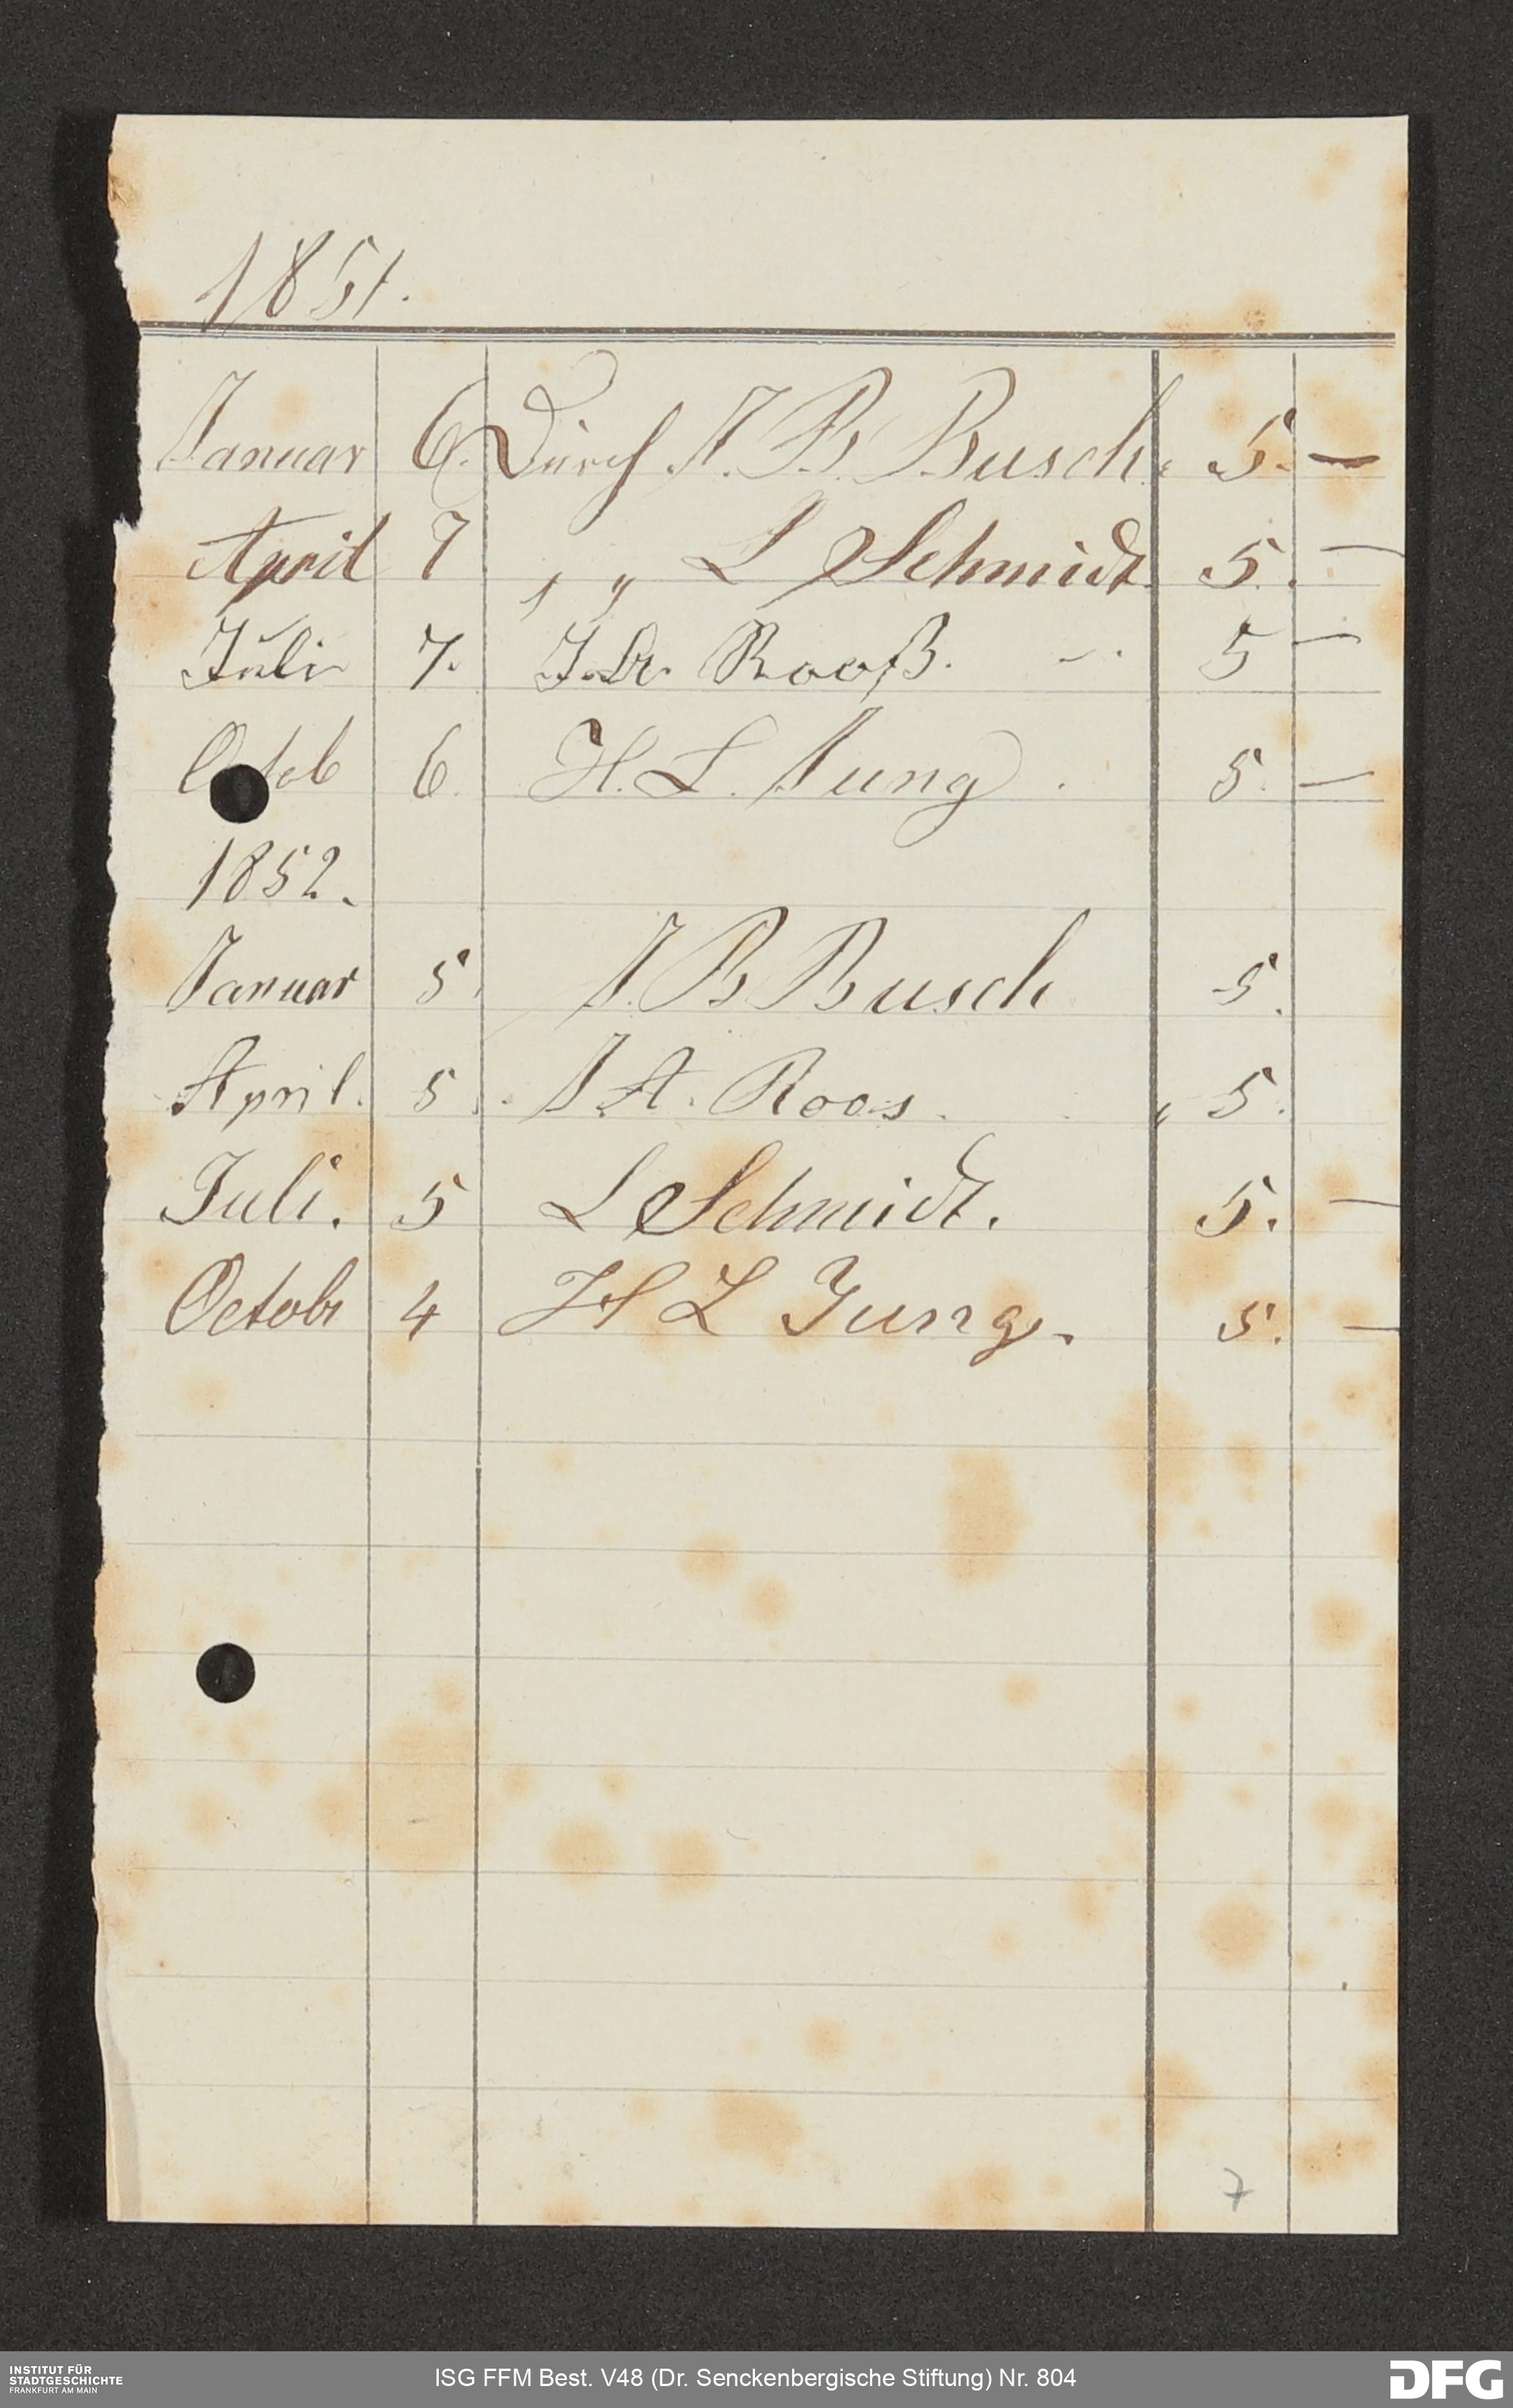 1851.
Januar 6. Durch J. B. Busch. 5. —
April 7 " " L Schmidt 5. —
Juli 7. Rooß. 5 —
Octob 6. H. L. Jung. 5. —
1852.
Januar 5. J B Busch 5.
April. 5. J A. Roos. " 5.
Juli. 5 L Schmidt. 5. —
Octobr 4 H L Jung. 5. —
7
INSTITUT FÜR
STADTGESCHICHTE
FRANKFURT AM MAIN
ISG FFM Best. V48 (Dr. Senckenbergische Stiftung) Nr. 804
DFG